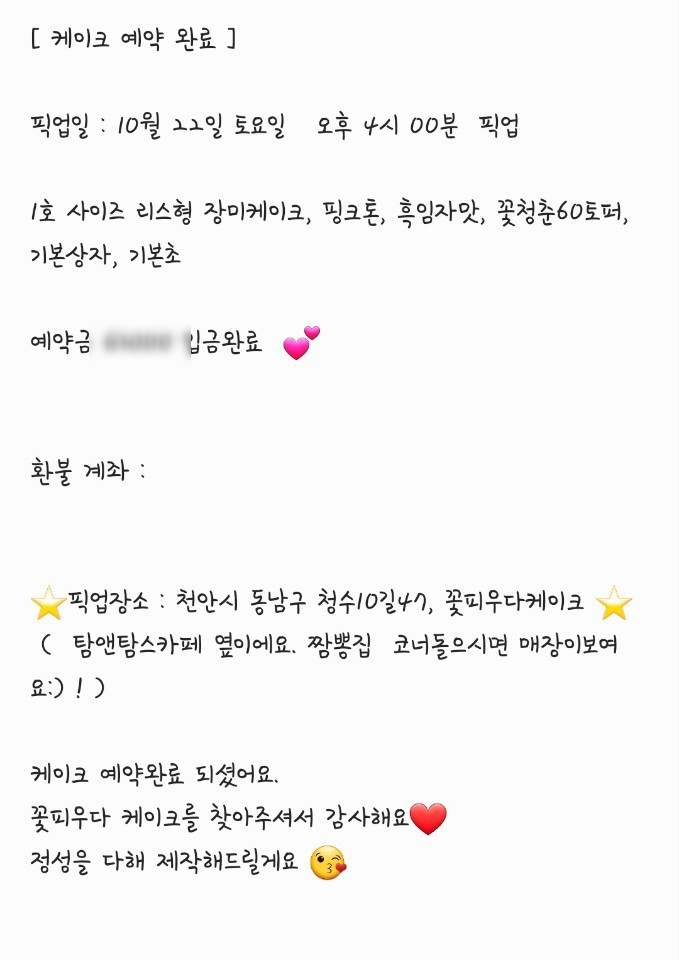 [ 케이크 예약 완료 ]
픽업일 : 10월 22일 토요일 오후 4시 00분 픽업
1호 사이즈 리스형 장미케이크, 핑크톤, 흑임자맛, 꽃청춘60토퍼,
기본상자, 기본초
예약금 입금완료 💕
환불 계좌 :
⭐픽업장소 : 천안시 동남구 청수10길47, 꽃피우다케이크 ⭐
( 탐앤탐스카페 옆이에요. 짬뽕집 코너돌으시면 매장이보여
요:) ! )
케이크 예약완료 되셨어요.
꽃피우다 케이크를 찾아주셔서 감사해요❤️
정성을 다해 제작해드릴게요 😘